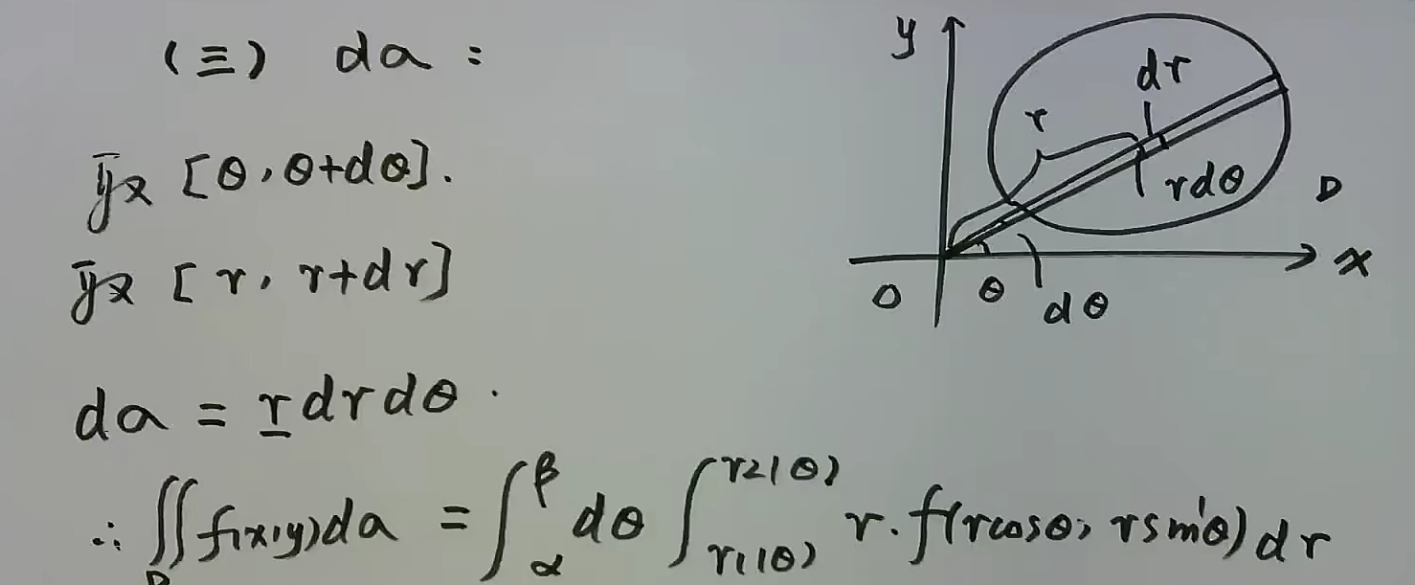 (三) dσ：
取 [θ, θ+dθ].
取 [r, r+dr]
dσ = r dr dθ.
∴ ∬_D f(x,y)dσ = ∫_α^β dθ ∫_{r1(θ)}^{r2(θ)} r·f(rcosθ, rsinθ) dr
y
dr
r
rdθ
D
x
O
θ
dθ